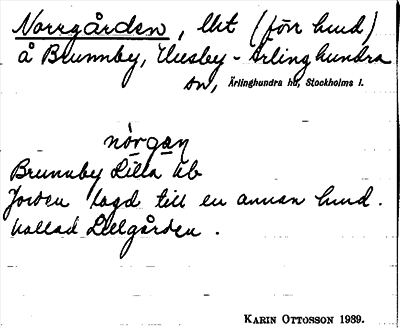 Norrgården, lht (förr hmd)
å Brunnby, Husby-Ärlinghundra
sn, Ärlinghundra hd, Stockholms l.
nòrgan
Brunnby Lilla ub
Jorden lagd till en annan hmd.
kallad Lillgården.
KARIN OTTOSSON 1939.